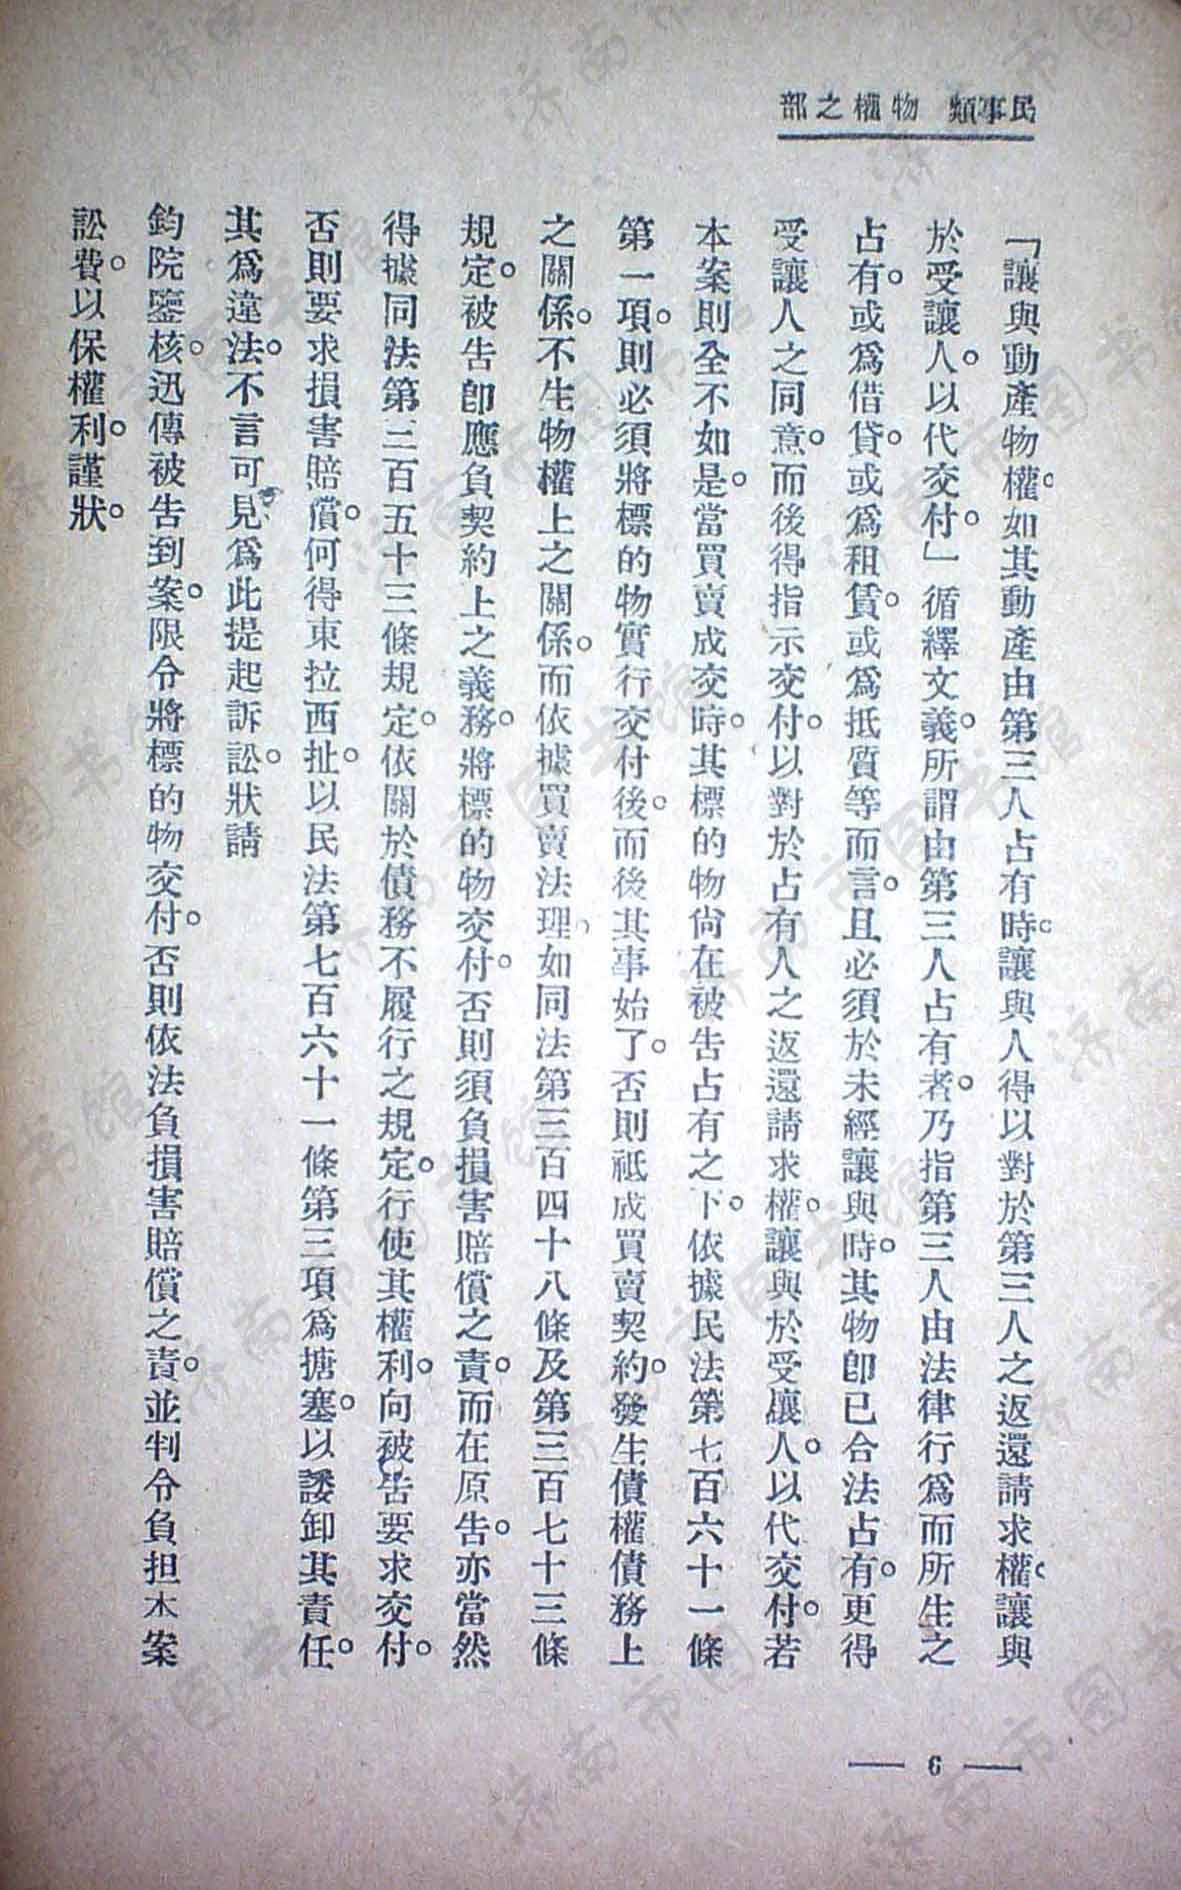 民事類　物權之部
「讓與動產物權。如其動產由第三人占有時。讓與人得以對於第三人之返還請求權。讓與
於受讓人。以代交付。」循繹文義。所謂由第三人占有者。乃指第三人由法律行爲而所生之
占有。或爲借貸。或爲租賃。或爲抵質等而言。且必須於未經讓與時。其物卽已合法占有。更得
受讓人之同意。而後得指示交付。以對於占有人之返還請求權。讓與於受讓人。以代交付。若
本案則全不如是。當買賣成交時。其標的物尙在被告占有之下。依據民法第七百六十一條
第一項。則必須將標的物實行交付後。而後其事始了。否則祇成買賣契約。發生債權債務上
之關係。不生物權上之關係。而依據買賣法理。如同法第三百四十八條及第三百七十三條
規定。被告卽應負契約上之義務。將標的物交付。否則須負損害賠償之責。而在原告。亦當然
得據同法第三百五十三條規定。依關於債務不履行之規定。行使其權利。向被告要求交付。
否則要求損害賠償。何得東拉西扯。以民法第七百六十一條第三項爲搪塞。以諉卸其責任。
其爲違法。不言可見。爲此提起訴訟。狀請
鈞院鑒核。迅傳被告到案。限令將標的物交付。否則依法負損害賠償之責。並判令負担本案
訟費。以保權利。謹狀。
— 6 —
济南市图书馆